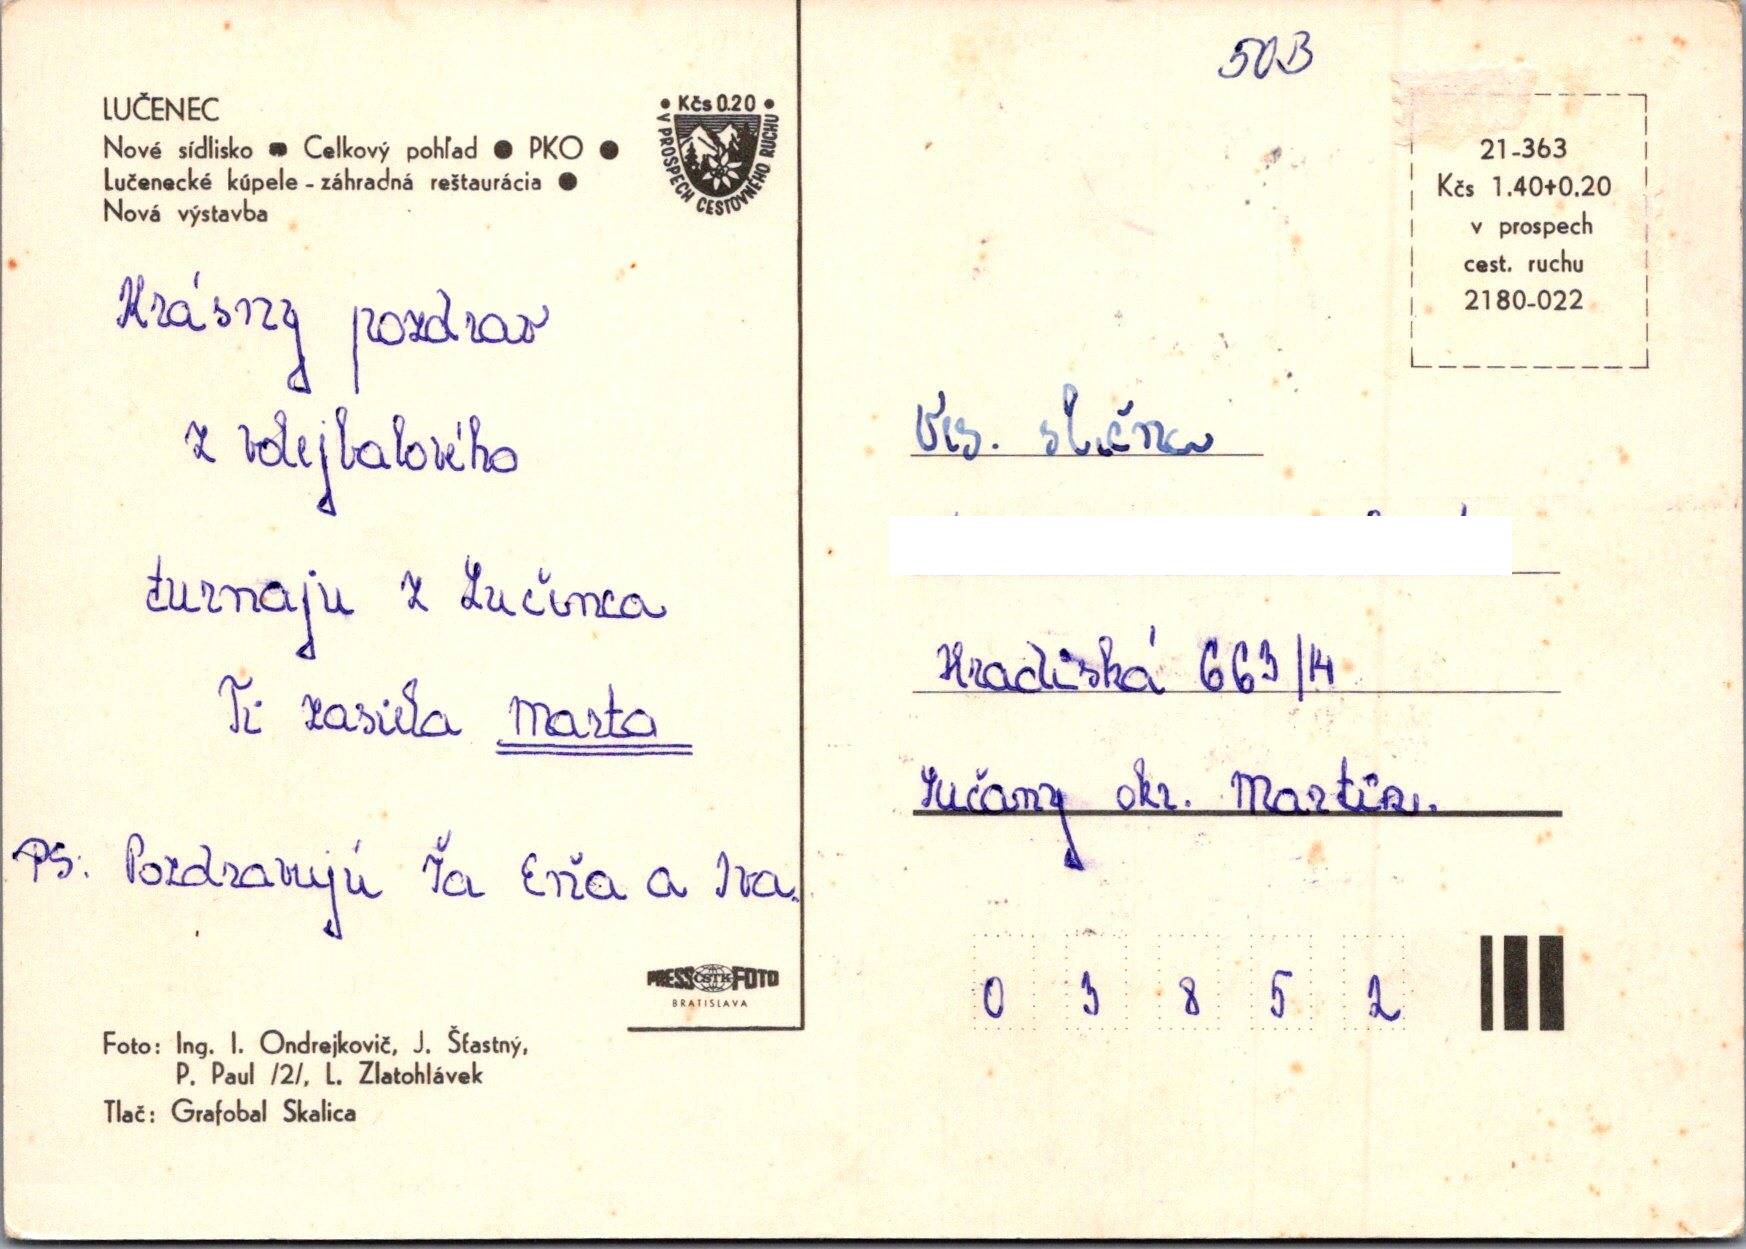 LUČENEC
Nové sídlisko ● Celkový pohľad ● PKO ●
Lučenecké kúpele - záhradná reštaurácia ●
Nová výstavba
• Kčs 0.20 •
V PROSPECH CESTOVNÉHO RUCHU
Krásny pozdrav
z volejbalového
turnaju z Lučenca
Ti zasiela Marta
PS: Pozdravujú Ťa Erža a Iva.
PRESS ČSTK FOTO
BRATISLAVA
Foto: Ing. I. Ondrejkovič, J. Šťastný,
P. Paul /2/, L. Zlatohlávek
Tlač: Grafobal Skalica
50B
21-363
Kčs 1.40+0.20
v prospech
cest. ruchu
2180-022
Vis. slečna
Hradiská 663/14
Lučany okr. Martin.
0 3 8 5 2